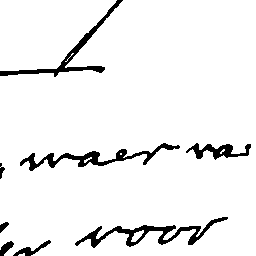 waer va
voor